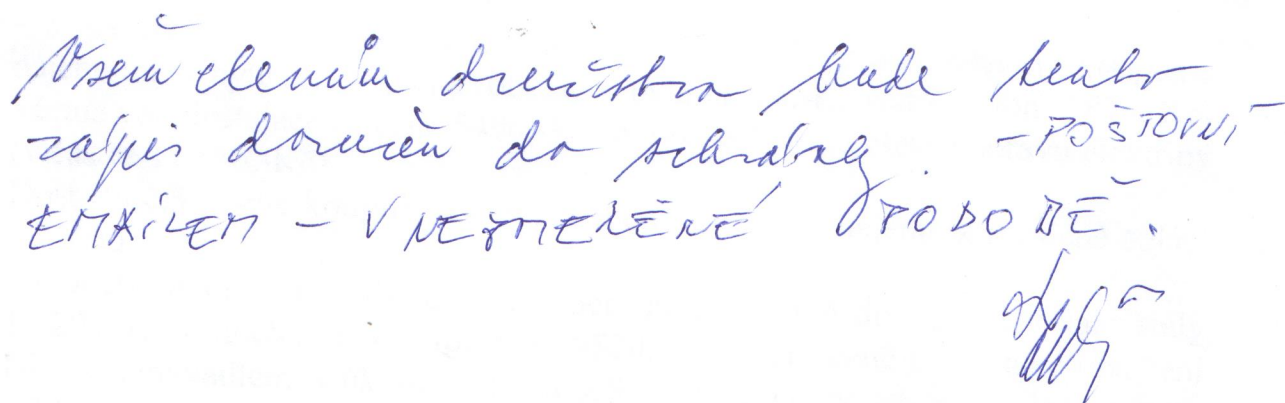 Všem členům družstva bude tento
zápis doručen do schránky - POŠTOVNÍ
EMAILEM - V NEZMĚNĚNÉ PODOBĚ.